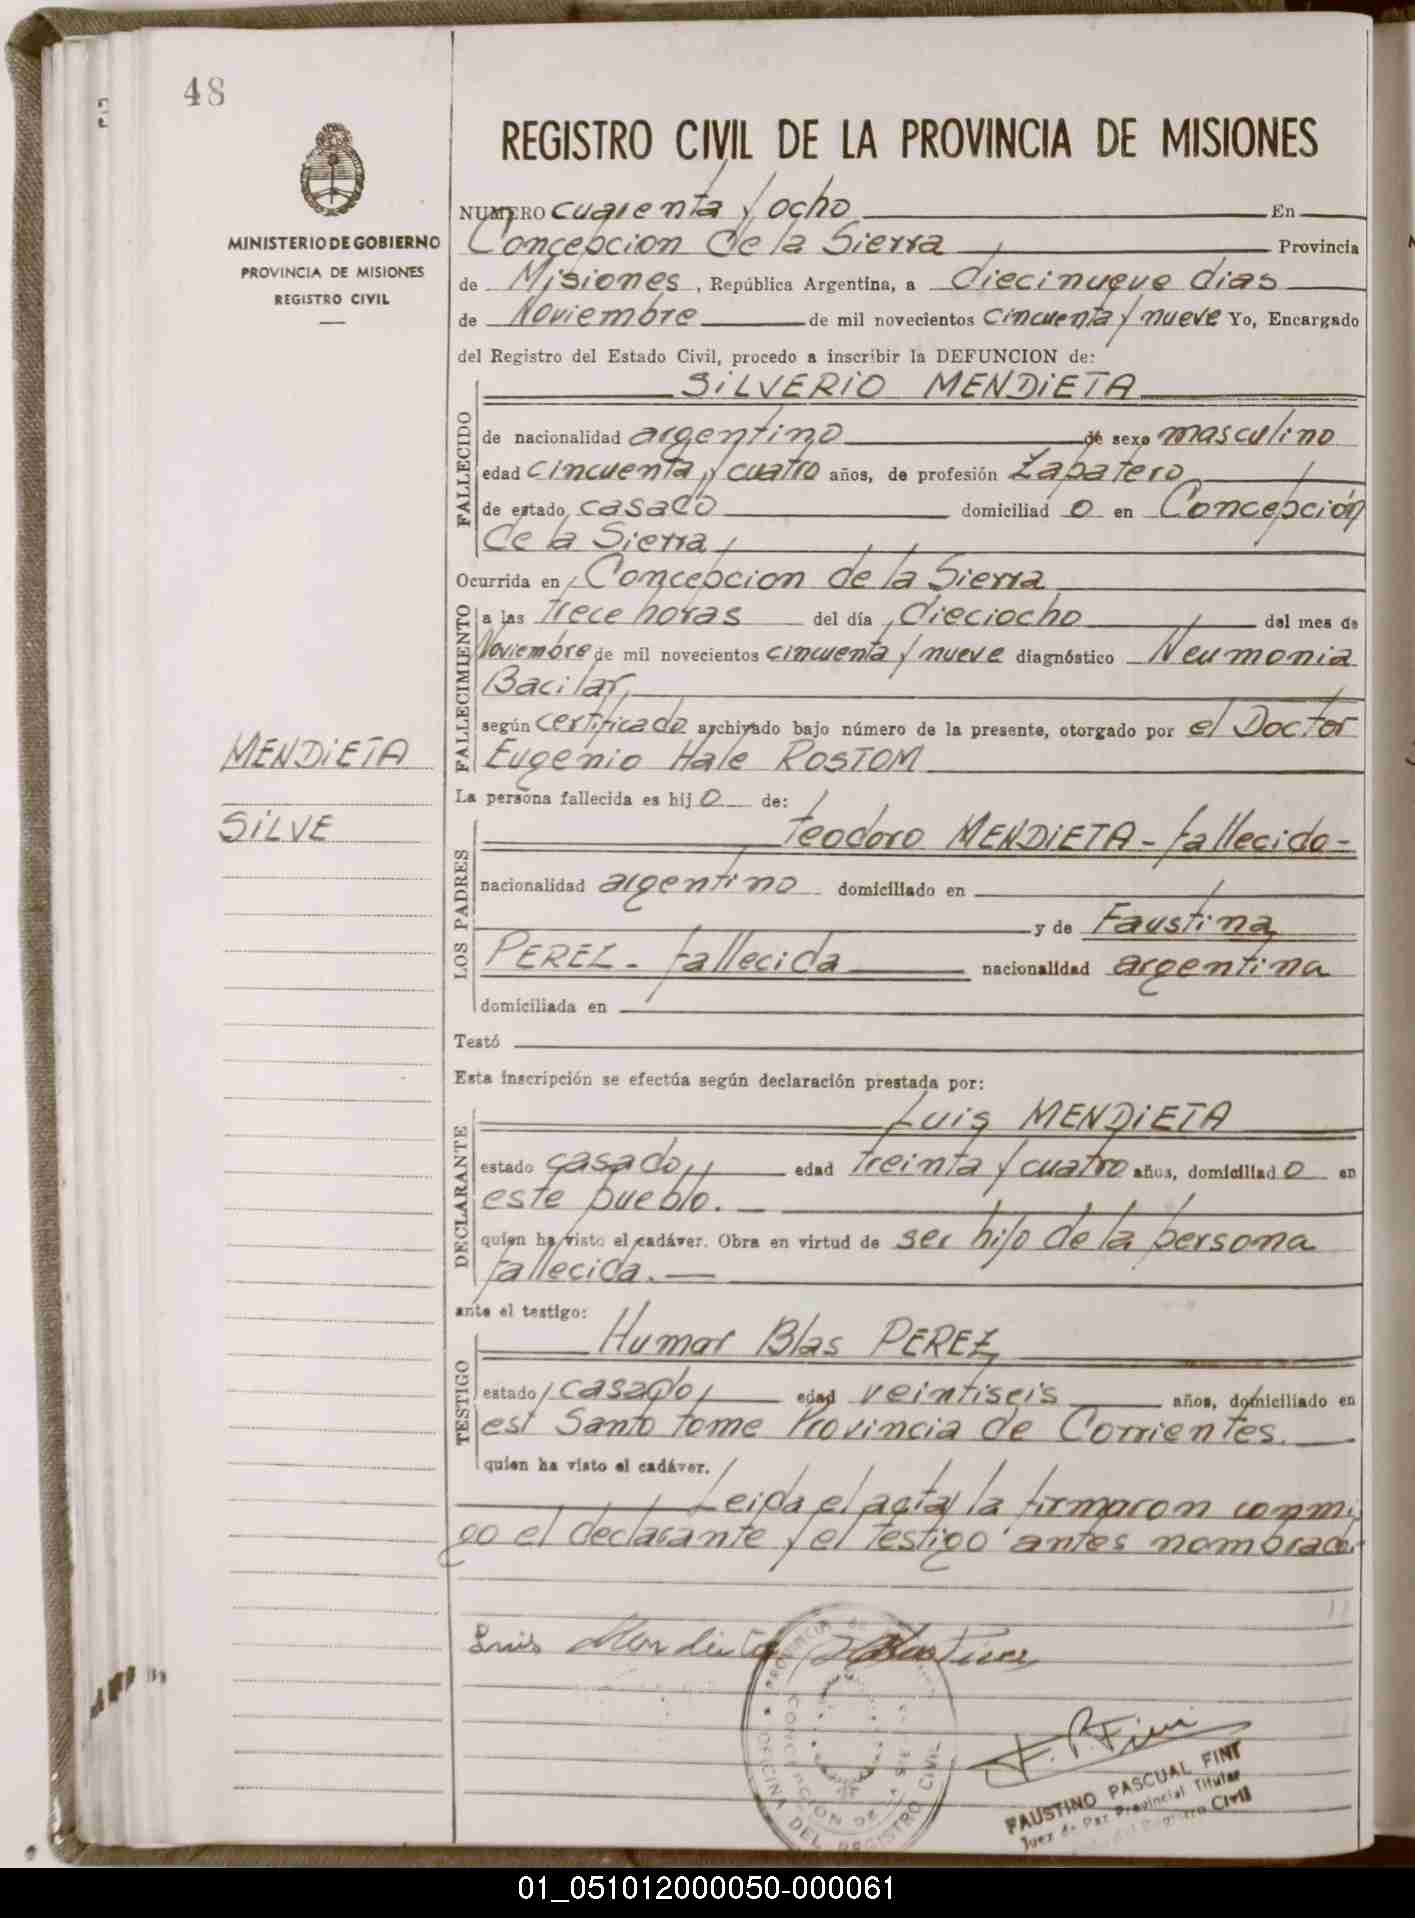 48
REGISTRO CIVIL DE LA PROVINCIA DE MISIONES
MINISTERIO DE GOBIERNO
PROVINCIA DE MISIONES
REGISTRO CIVIL
NUMERO cuarenta y ocho En
Concepcion de la Sierra Provincia
de Misiones, República Argentina, a diecinueve dias
de Noviembre de mil novecientos cincuenta y nueve Yo, Encargado
del Registro del Estado Civil, procedo a inscribir la DEFUNCION de:
SILVERIO MENDIETA
FALLECIDO
de nacionalidad argentino de sexo masculino
edad cincuenta y cuatro años, de profesión Zapatero
de estado casado domiciliad o en Concepción
de la Sierra
Ocurrida en Concepcion de la Sierra
FALLECIMIENTO
a las trece horas del día dieciocho del mes de
Noviembre de mil novecientos cincuenta y nueve diagnóstico Neumonia
Bacilar,
según certificado archivado bajo número de la presente, otorgado por el Doctor
Eugenio Hale ROSTOM
MENDIETA
SILVE
La persona fallecida es hij o de:
LOS PADRES
Teodoro MENDIETA - fallecido -
nacionalidad argentino domiciliado en
y de Faustina
PEREZ - fallecida nacionalidad argentina
domiciliada en
Testó
Esta inscripción se efectúa según declaración prestada por:
DECLARANTE
Luis MENDIETA
estado casado, edad treinta y cuatro años, domiciliad o en
este pueblo. -
quien ha visto el cadáver. Obra en virtud de ser hijo de la persona
fallecida. -
ante el testigo:
TESTIGO
Humar Blas PEREZ
estado casado edad veintiseis años, domiciliado en
est Santo tome Provincia de Corrientes.
quien ha visto el cadáver.
Leida el acta, la firmaron conmi
go el declarante y el testigo antes nombrado.
Luis Mendieta
F. P. Fini
OFICINA DEL REGISTRO CIVIL
FAUSTINO PASCUAL FINI
Juez de Paz Provincial Titular
del Registro Civil
01_051012000050-000061